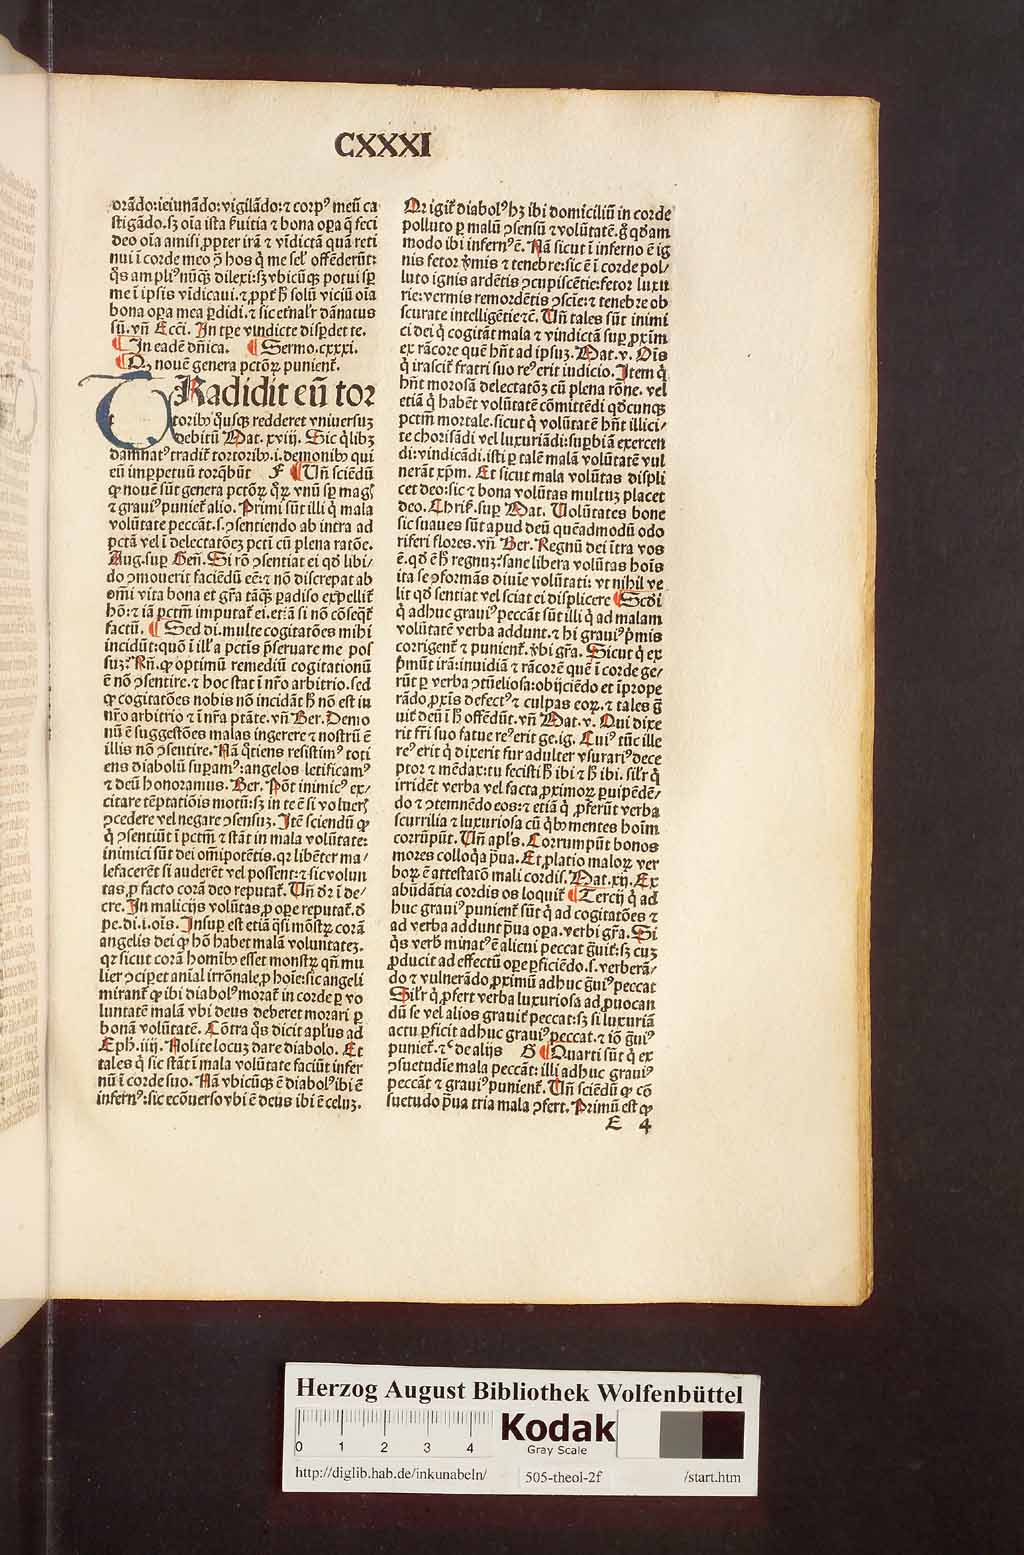 CXXXI
orādo:ieiunādo:vigilādo:⁊ corpꝰ meū ca
stigādo.sꝫ oīa ista ẜuitia ⁊ bona oꝑa q̄ feci
deo oīa amisi ꝓpter irā ⁊ vīdictā quā reti
nui ī corde meo ꝓ hos q̇ me sel' offēderūt:
q̇s ampliꝰ nūqꝫ dilexi:sꝫ vbicūqꝫ potui sꝑ
me ī ipsis vīdicaui.⁊ ꝓpt̄ h̄ solū viciū oīa
bona oꝑa mea ꝑdidi.⁊ sic etnal'r dānatus
sū.vn̄ Ecci. In tꝑe vindicte disꝑdet te.
In eadē dn̄ica. Sermo.cxxxi.
nouē genera pctōꝝ punient̄.
TRadidit eū tor
toribꝰ q̇usqꝫ redderet vniuersuꝫ
debitū Mat.xviij. Sic q̇libꝫ
damnatꝰ tradit̄ tortoribꝰ.i.demonibꝰ qui
eū imꝑpetuū torq̄būt F Vn̄ sciēdū
ꝙ nouē sūt genera pctōꝝ q̄ꝝ vnū sꝑ magꝭ
⁊ grauiꝰ puniet̄ alio. Primi sūt illi q̇ mala
volūtate peccāt.s.ꝯsentiendo ab intra ad
pctā vel ī delectatōeꝫ pcti cū plena ratōe.
Aug.suꝑ Gen̄. Si rō ꝯsentiat ei qd̄ libi/
do ꝯmouerit faciēdū eē:⁊ nō discrepat ab
om̄i vita bona et gr̄a tāqꝫ ꝑadiso expellit̄
hō:⁊ iā pctm̄ imputat̄ ei.et:ā si nō cōseqt̄
factū. Sed di.multe cogitatōes mihi
incidūt:quō ī ill'a pctis p̄seruare me pos
suꝫ? Rn̄.ꝙ optimū remediū cogitationū
ē nō ꝯsentire.⁊ hoc stat ī nr̄o arbitrio.sed
ꝙ cogitatōes nobis nō incidāt h̄ nō est in
nr̄o arbitrio ⁊ in̄ra ptāte.vn̄ Ber.Demo
nū ē suggestōes malas ingerere ⁊ nostrū ē
illis nō ꝯsentire. Nā q̇tiens resistimꝰ toti
ens diabolū suꝑamꝰ:angelos letificamꝰ
⁊ deū honoramus. Ber. Pōt inimicꝰ ex/
citare tēptatiōis motū:sꝫ in te ē si voluerꝭ
ꝯcedere vel negare ꝯsensuꝫ. Itē sciendū ꝙ
q̇ ꝯsentiūt ī pctm̄ ⁊ stāt in mala volūtate:
inimici sūt dei om̄ipotētis.qꝛ libēter ma/
lefacerēt si auderēt vel possent:⁊ sic volun
tas ꝓ facto corā deo reputat̄. Vn̄ dꝛ ī de/
cre. In malicijs volūtas ꝓ oꝑe reputat̄.d̄
pe.di.i.oīs. Insuꝑ est etiā q̇si mōstꝝ corā
angelis dei ꝙ hō habet malā voluntateꝫ.
qꝛ sicut corā homībꝰ esset monstꝝ qn̄ mu
lier ꝯciꝑet aīal irrōnale ꝓ hoīe:sic angeli
mirant̄ ꝙ ibi diabolꝰ morat̄ in corde ꝑ vo
luntatē malā vbi deus deberet morari ꝑ
bonā volūtatē. Cōtra q̇s dicit apl'us ad
Eph.iiij. Nolite locuꝫ dare diabolo. Et
tales q̇ sic stāt ī mala volūtate faciūt infer
nū ī corde suo. Nā vbicūqꝫ ē diabolꝰ ibi ē
infernꝰ:sic ecōuerso vbi ē deus ibi ē celuꝫ.
Or igit̄ diabolꝰ hꝫ ibi domiciliū in corde
polluto ꝑ malū ꝯsensū ⁊ volūtatē.g̊ qd̄am
modo ibi infernꝰ ē. Nā sicut ī inferno ē ig
nis fetor v̄mis ⁊ tenebre:sic ē ī corde pol/
luto ignis ardētis ꝯcupiscētie:fetor luxu
rie:vermis remordētis ꝯscīe:⁊ tenebre ob
scurate intelligētie ꝛc̄. Vn̄ tales sūt inimi
ci dei q̇ cogitāt mala ⁊ vindictā suꝑ ꝓxim̄
ex rācore quē hn̄t ad ipsuꝫ. Mat.v. Oīs
q̇ irascit̄ fratri suo reꝰ erit iudicio. Item q̇
hn̄t morosā delectatōꝫ cū plena rōne. vel
etiā q̇ habēt volūtatē cōmittēdi qd̄cunqꝫ
pctm̄ mortale.sicut q̇ volūtatē hn̄t illici/
te chorisādi vel luxuriādi:suꝑbiā exercen
di:vindicādi.isti ꝑ talē malā volūtatē vul
nerāt xp̄m. Et sicut mala volūtas displi
cet deo:sic ⁊ bona volūtas multuꝫ placet
deo. Chriſ.suꝑ Mat. Volūtates bone
sic suaues sūt apud deū quēadmodū odo
riferi flores.vn̄ Ber. Regnū dei ītra vos
ē.qd̄ ē h̄ regnuꝫ:sane libera volūtas hoīs
ita se ꝯformās diuīe volūtati: vt nihil ve
lit qd̄ sentiat vel sciat ei displicere Scd̄i
q̇ adhuc grauiꝰ peccāt sūt illi q̇ ad malam
volūtatē verba addunt.⁊ hi grauiꝰ p̄mis
corrigent̄ ⁊ punient̄.v̄bi gr̄a. Sicut q̇ ex
p̄mūt irā:inuidiā ⁊ rācorē quē ī corde ge/
rūt ꝑ verba ꝯtūeliosa:obijciēdo et īprope
rādo ꝓxīs defectꝰ ⁊ culpas eoꝝ.⁊ tales g̊
uit̄ deū ī h̄ offēdūt.vn̄ Mat.v. Qui dixe
rit fr̄i suo fatue reꝰ erit ge.ig. Cuiꝰ tūc ille
reꝰ erit q̇ dixerit fur adulter vsurariꝰ dece
ptor ⁊ mēdax:tu fecisti h̄ ibi ⁊ h̄ ibi. sil'r q̇
irridēt verba vel facta ꝓximoꝝ ꝑuipēdē/
do ⁊ ꝯtemnēdo eos:⁊ etiā q̇ ꝓferūt verba
scurrilia ⁊ luxuriosa cū q̇bꝰ mentes hoīm
corrūpūt. Vn̄ apl's. Corrumpūt bonos
mores colloq̇a p̄ua. Et ꝓlatio maloꝝ ver
boꝝ ē attestatō mali cordis. Mat.xij. Ex
abūdātia cordis os loquit̄ Tercij q̇ ad
huc grauiꝰ punient̄ sūt q̇ ad cogitatōes ⁊
ad verba addunt p̄ua oꝑa.verbi gr̄a. Si
q̇s verbꝭ minatꝰ ē alicui peccat g̊uit̄:sꝫ cuꝫ
ꝓducit ad effectū oꝑe ꝑficiēdo.s.verberā/
do ⁊ vulnerādo ꝓximū adhuc g̊uiꝰ peccat
Sil'r q̇ ꝓfert verba luxuriosa ad ꝓuocan
dū se vel alios grauit̄ peccat:sꝫ si luxuriā
actu ꝑficit adhuc grauiꝰ peccat.⁊ iō g̊uiꝰ
puniet̄.⁊ c̄ de alijs G Quarti sūt q̇ ex
ꝯsuetudīe mala peccāt: illi adhuc grauiꝰ
peccāt ⁊ grauiꝰ punient̄. Vn̄ sciēdū ꝙ cō
suetudo p̄ua tria mala ꝯfert. Primū est ꝙ
E 4
Herzog August Bibliothek Wolfenbüttel
0 1 2 3 4
Kodak
Gray Scale
http://diglib.hab.de/inkunabeln/ 505-theol-2f /start.htm